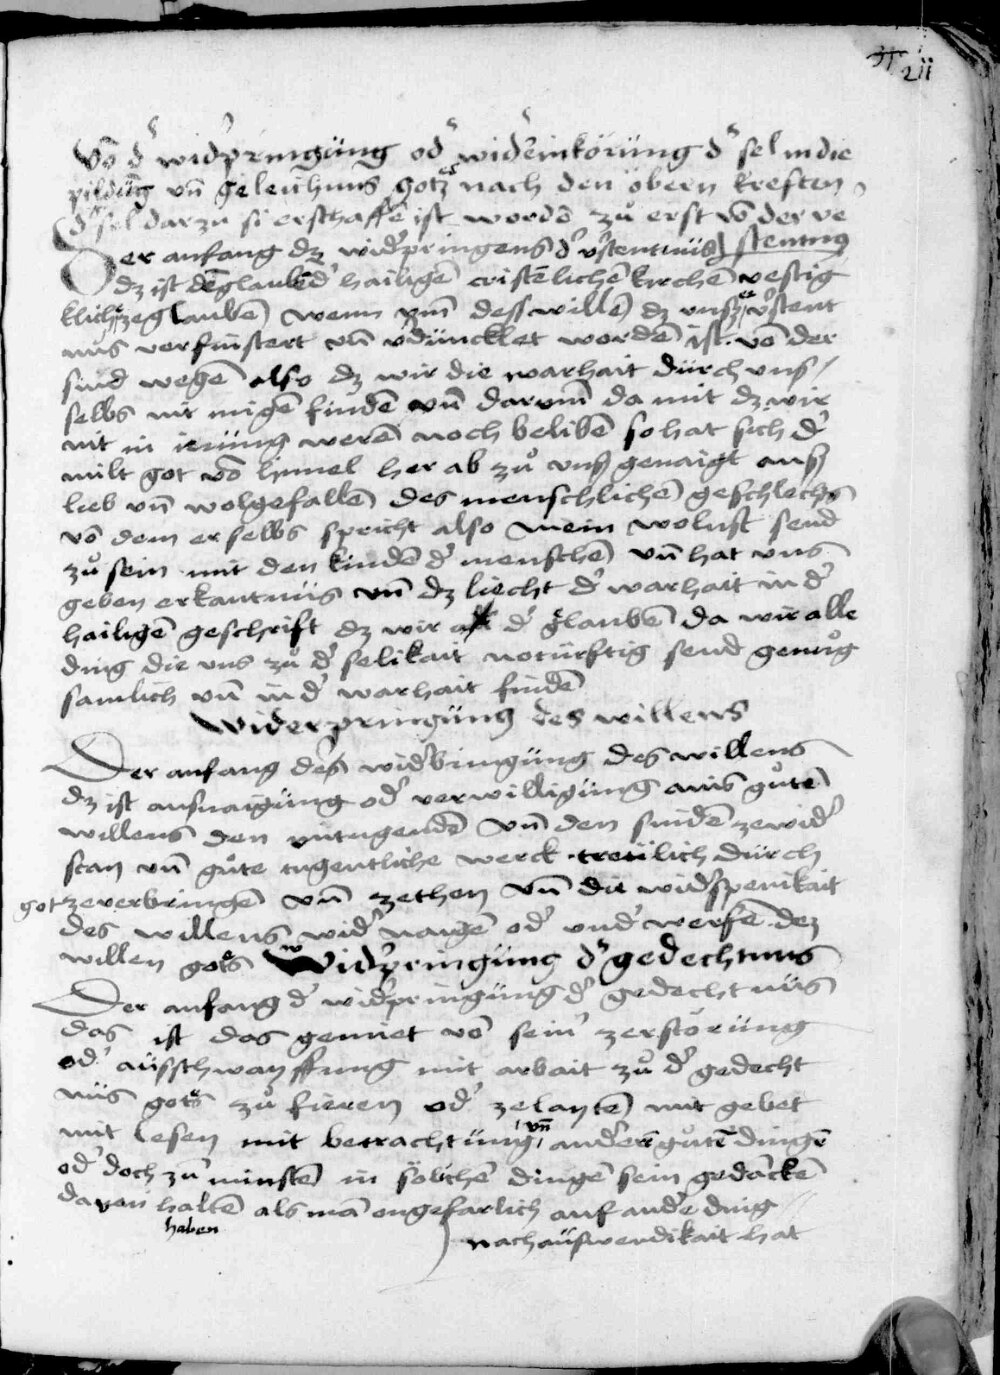 31 211
Vō d' wid'pringūng od' wid'einkörūng d' sel in die
pildūg vn̄ geleichnus gotz nach den öbern kreften
d' sel dar zu si erschaffē ist wordē zů erst vō der ve
Der anfang dz wid'pringens d' v'stentnūs stentnus
dz ist dē glaubē d' hailigē cristēlichē kirchē vestig
klichē ze glaubē wenn vm̄ dess willē dz vnsz v'stent
nus verfinstert vn̄ v'dūncklet wordē ist vō der
sind wegē also dz wir die warhait dūrch vns
selbs nit migē findē vn̄ darvm̄ da mit dz wir
nit in irrūng werē noch belibē so hat sich d'
milt got vō himel her ab zů vns genaigt auß
lieb vn̄ wolgefallē des menschlichē geschlechs
vō dem er selbs spricht also mein wolust send
zů sein mit den kindē d' menschē vn̄ hat vns
geben erkantnūs vn̄ dz liecht d' warhait in d'
hailigē geschrift dz wir d' glaubē da wir alle
ding die vns zů d' selikait notūrftig send genůg
samlich vn̄ in d' warhait findē
Widerpringūng des willens
Der anfang des wid'bringūng des willens
dz ist ausnaigūng od' verwilligūng aus gůtē
willens den vntugendē vn̄ den sindē zewid'
stan vn̄ gůte tugentliche werck trewlich dūrch
got zeverbringē vn̄ zethon vn̄ die wid'spenikait
des willens wid' naigē od' vnd' werfē dez
willen gots Wid'pringūng d' gedechtnus
Der anfang d' wid'pringūng d' gedechtnūs
das ist das gemiet vō sein' zerstörūng
od' aūsschwayffung mit arbait zů d' gedecht
nūs gots zů fieren od' zelaytē mit gebet
mit lesen mit betrachtūng vn̄ anderē gůtē dingē
od' doch zū minstē in sölichē dingē sein gedāckē
davon haltē als mā ongefarlich auf andē ding
haben nach aūswendikait hat